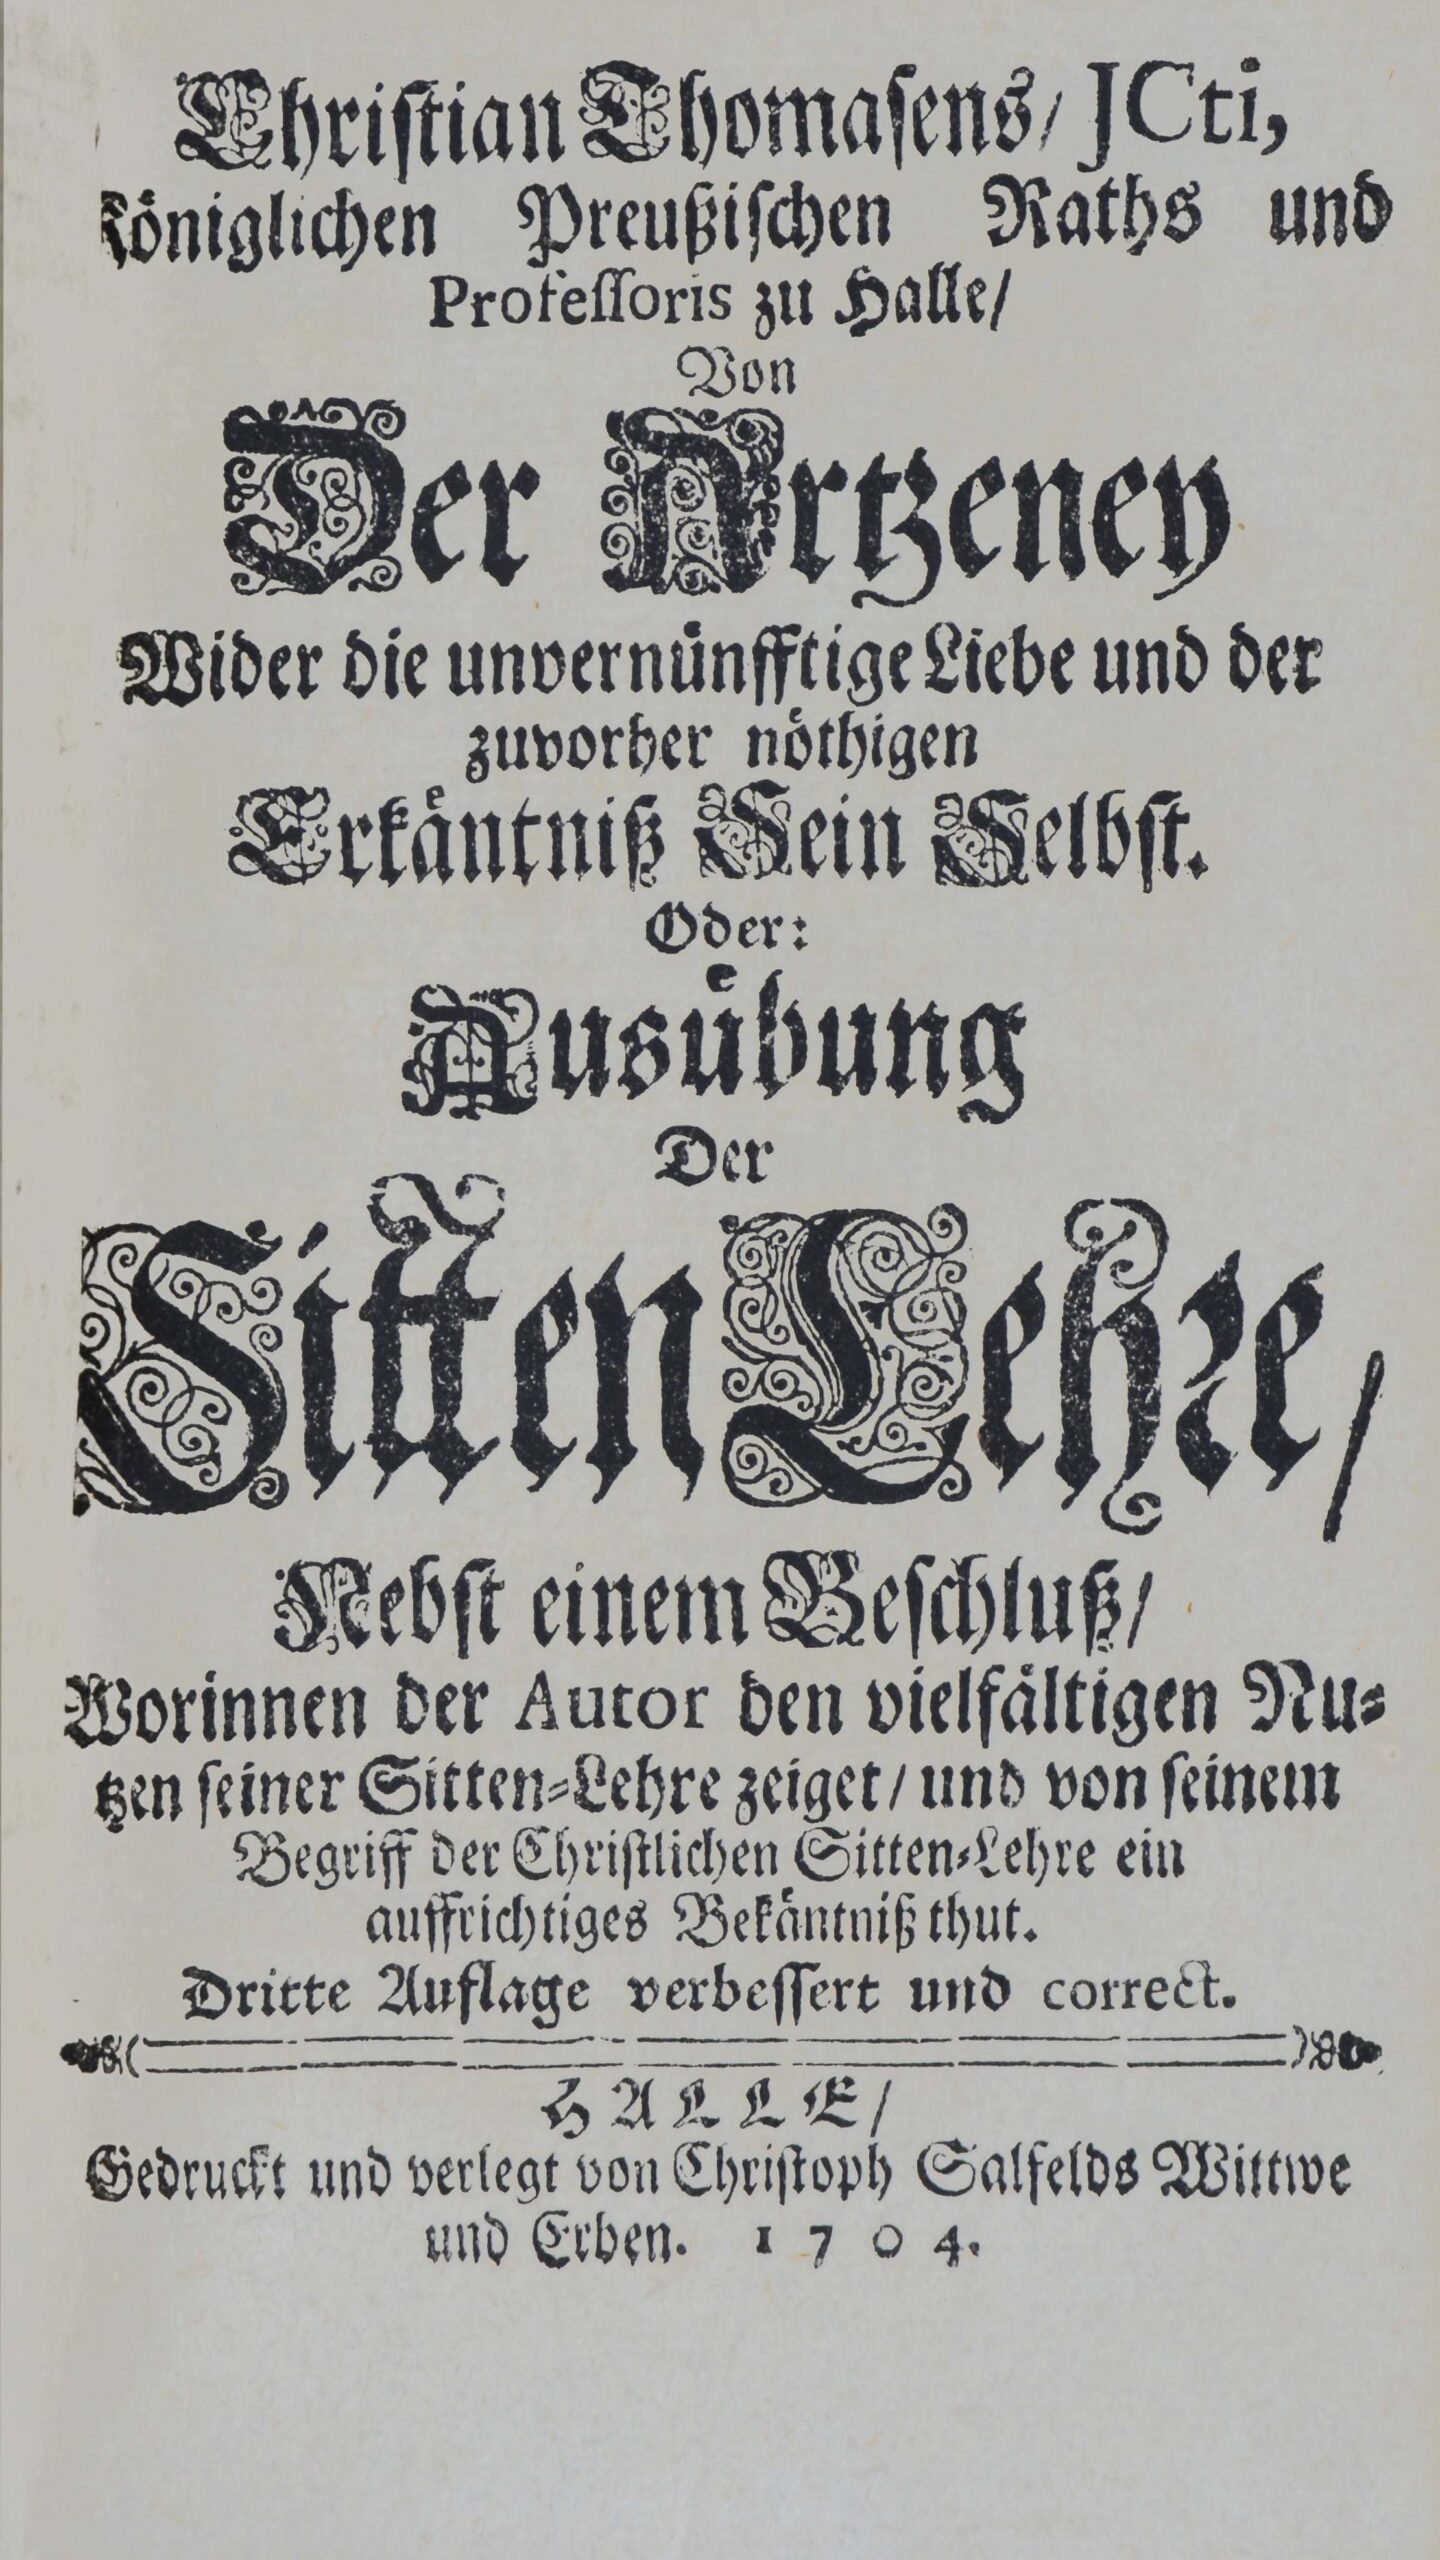 Christian Thomasens/ JCti,
Königlichen Preußischen Raths und
Professoris zu Halle/
Von
Der Artzeney
Wider die unvernünfftige Liebe und der
zuvorher nöthigen
Erkäntniß Sein Selbst.
Oder:
Ausübung
Der
SittenLehre/
Nebst einem Beschluß/
Worinnen der Autor den vielfältigen Nu-
tzen seiner Sitten-Lehre zeiget/ und von seinem
Begriff der Christlichen Sitten-Lehre ein
auffrichtiges Bekäntniß thut.
Dritte Auflage verbessert und correct.
HALLE/
Gedruckt und verlegt von Christoph Salfelds Wittwe
und Erben. 1704.